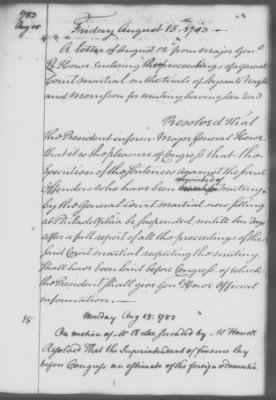 1783
Aug 15
Friday August 15th 1783
A letter of August 12 from major Genl
R Howe, enclosing the proceedings of a general
Court martial on the trials of Serjeants Nagle
and Morrison for mutiny having been read
Resolved That
the President inform Major General Howe
that it is the pleasure of Congress that the
Execution of the sentences against the several
Offenders who have been convicted of mutiny
by the general court martial now sitting
at Philadelphia be suspended, until ten days
after a full report of all the proceedings of the
said Court martial respecting the mutiny
shall have been laid before Congress, of which
the President shall give Genl Howe Official
information.
18
Monday Aug 18. 1783
On motion of Mr A Lee seconded by Mr Howell
Resolved That the Superintendent of finance lay
before Congress an estimate of the foreign & domestic